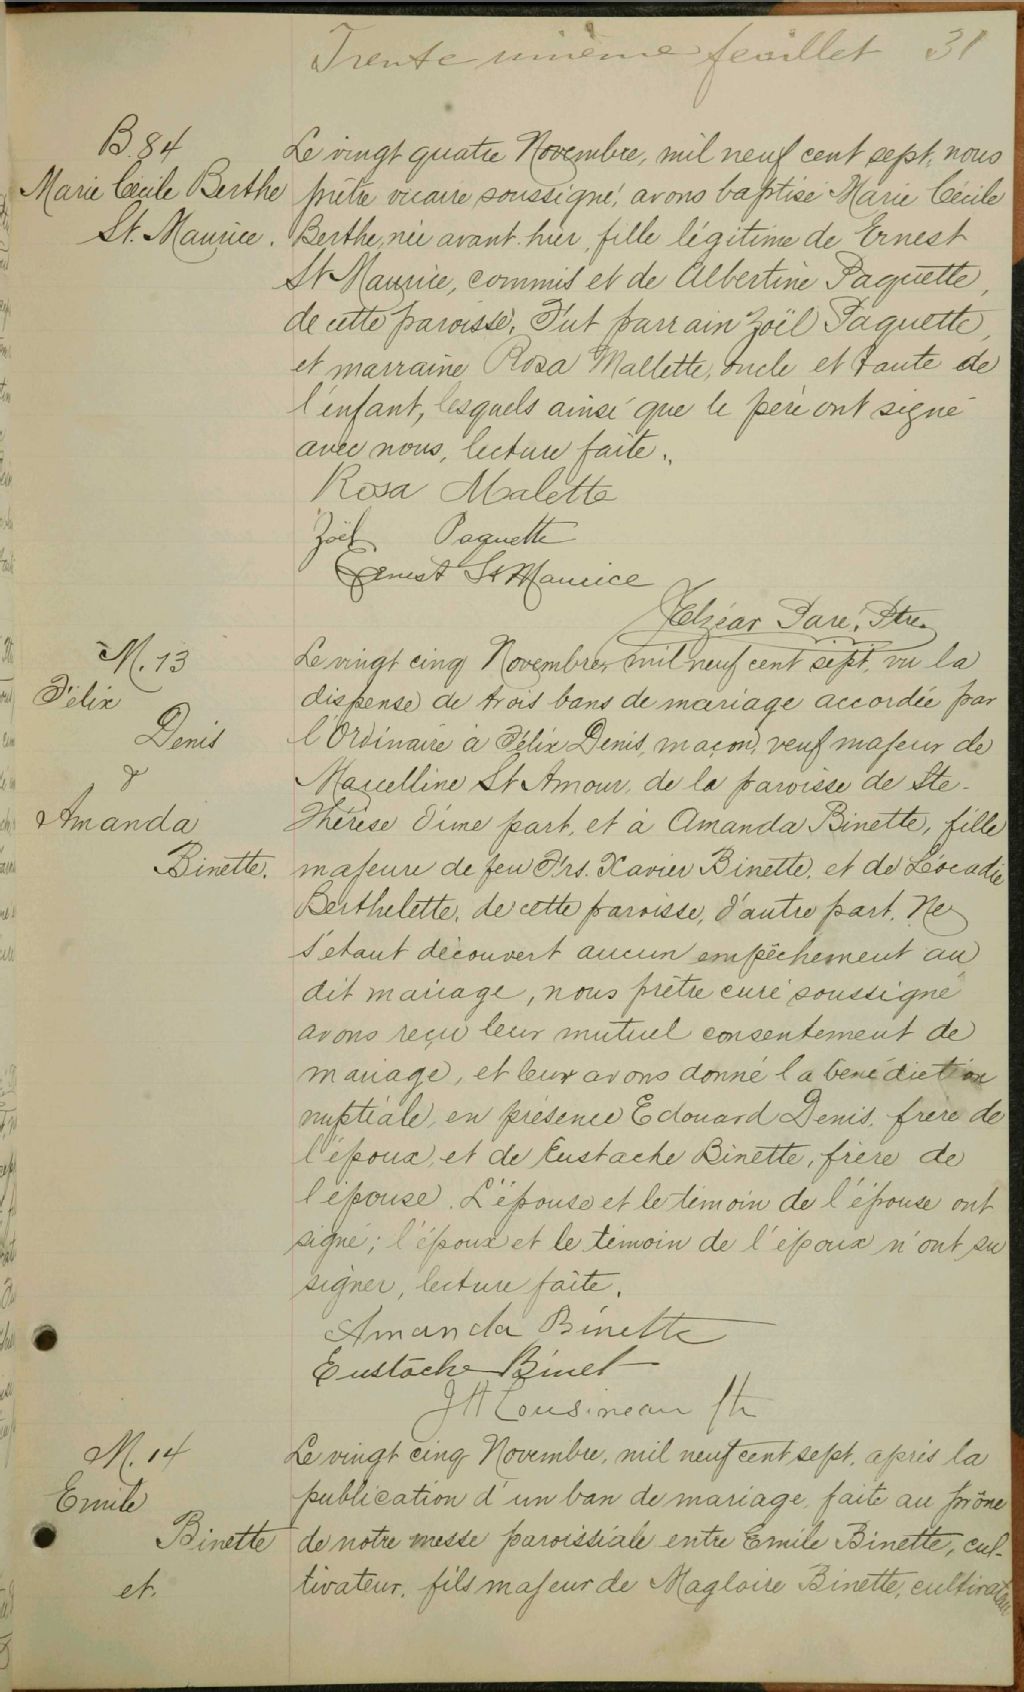 Trente unième feuillet 31
B. 84
Marie Cécile Berthe
St. Maurice.
Le vingt quatre Novembre, mil neuf cent sept, nous
prêtre vicaire soussigné, avons baptisé Marie Cécile
Berthe, née avant-hier, fille légitime de Ernest
St Maurice, commis et de Albertine Paquette,
de cette paroisse. Fut parrain Zoël Paquette,
et marraine Rosa Mallette, oncle et tante de
l'enfant, lesquels ainsi que le père ont signé
avec nous, lecture faite.
Rosa Malette
Zoël Paquette
Ernest St Maurice
Elzéar Paré, Ptre.
M. 13
Félix
Denis
&
Amanda
Binette.
Le vingt cinq Novembre, mil neuf cent sept, vu la
dispense de trois bans de mariage accordée par
l'Ordinaire à Félix Denis, maçon, veuf majeur de
Marcelline St Amour, de la paroisse de Ste-
Thérèse d'une part, et à Amanda Binette, fille
majeure de feu Frs. Xavier Binette, et de Léocadie
Berthelette, de cette paroisse, d'autre part. Ne
s'étant découvert aucun empêchement au
dit mariage, nous prêtre curé soussigné
avons reçu leur mutuel consentement de
mariage, et leur avons donné la bénédiction
nuptiale, en présence Edouard Denis, frère de
l'époux, et de Eustache Binette, frère de
l'épouse. L'épouse et le témoin de l'épouse ont
signé; l'époux et le témoin de l'époux n'ont su
signer, lecture faite.
Amanda Binette
Eustache Binet
JH Cousineau Ptr
M. 14
Emile
Binette
et.
Le vingt cinq Novembre, mil neuf cent sept, après la
publication d'un ban de mariage faite au prône
de notre messe paroissiale entre Emile Binette, cul-
tivateur, fils majeur de Magloire Binette, cultivateur